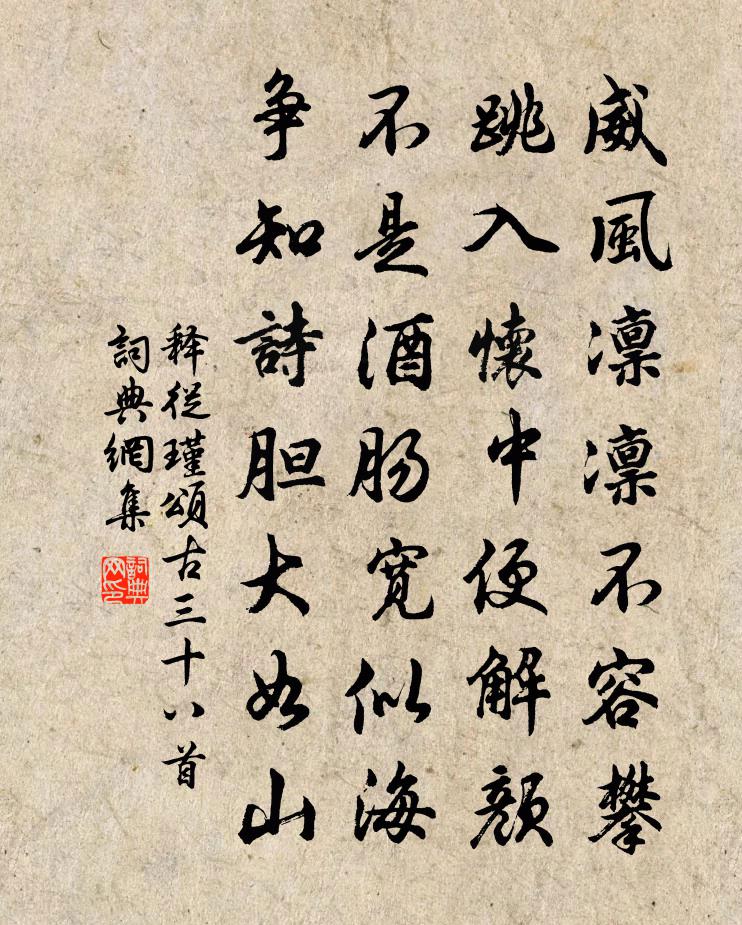 威風凛凛不容攀
跳入懷中便解顔
不是酒肠寛似海
争知詩胆大如山
释從瑾頌古三十八首
詞典網集
詞典網印